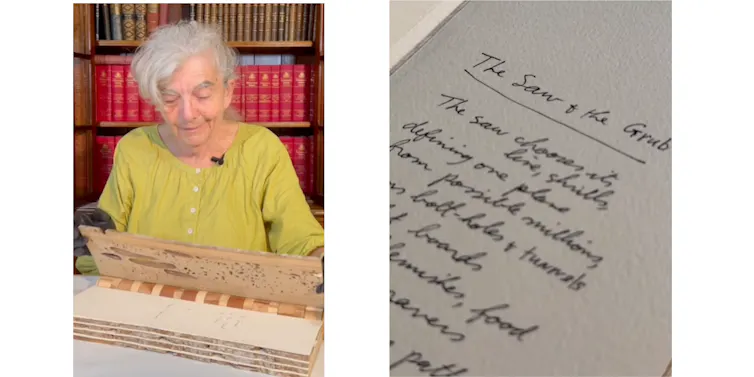 The Saw & the Grub
The saw chooses its
line, shrills,
defining one plane
from possible millions,
bolt-holes & tunnels
boards
food
path